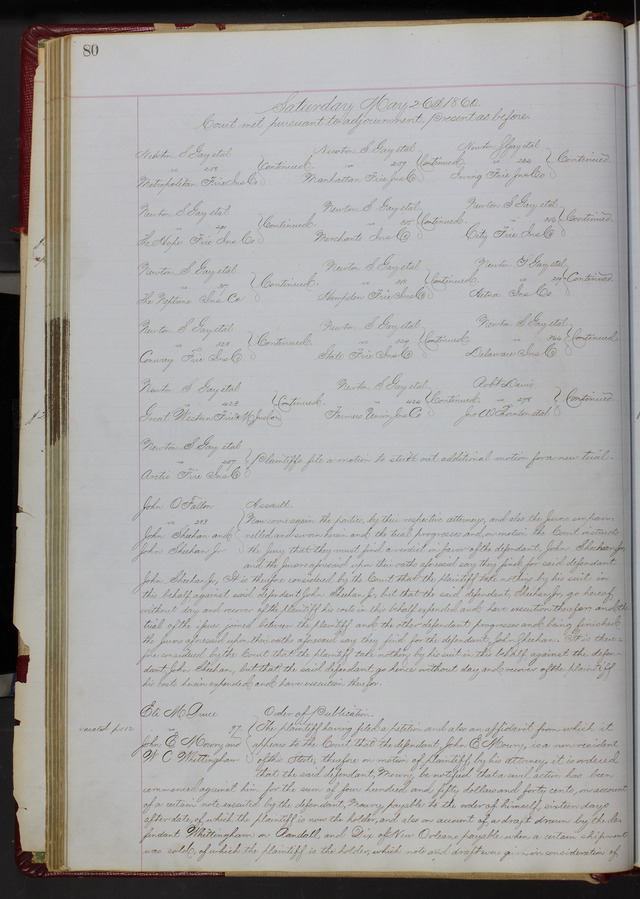 80
Saturday May 26th 1860.
Court met pursuant to adjournment. Present as before.
Newton S Gay et al
Metropolitan Fire Ins Co
Continued
Newton S Gay et al
Manhattan Fire Ins Co
Continued
Newton S Gay et al
Irving Fire Ins Co
Continued
Newton S Gay et al
The Hope Fire Ins Co
Continued
Newton S Gay et al
Merchants Ins Co
Continued
Newton S Gay et al
City Fire Ins Co
Continued
Newton S Gay et al
The Neptune Ins Co
Continued
Newton S Gay et al
Hampden Fire Ins Co
Continued
Newton S Gay et al
Aetna Ins Co
Continued
Newton S Gay et al
Conway Fire Ins Co
Continued
Newton S Gay et al
State Fire Ins Co
Continued
Newton S Gay et al
Delaware Ins Co
Continued
Newton S Gay et al
Great Western Fire & M Ins Co
Continued
Newton S Gay et al
Farmers Union Ins Co
Continued
Robt Davis
Continued
Newton S Gay et al
Arctic Fire Ins Co
Plaintiffs file a motion to strike out additional motion for a new trial.
John O Fallon
John Sheehan and
John Sheehan Jr
Assault.
Now come again the parties, by their respective attorneys, and also the jurors empan-
nelled and sworn herein and the trial progresses and, on motion the Court instructs
the jury that they must find a verdict in favor of the defendant, John Sheehan Jr,
and the jurors aforesaid upon their oaths aforesaid say they find for said defendant
John Sheehan Jr, It is therefore considered by the Court that the plaintiff take nothing by his suit in
this behalf against said defendant John Sheehan Jr, but that the said defendant, Sheehan Jr, go hence
without day and recover of the plaintiff his costs in this behalf expended and have execution therefor, and the
trial of the issue joined between the plaintiff and the other defendant progresses and being finished
the jurors aforesaid upon their oaths aforesaid say they find for the defendant, John Sheehan. It is there-
fore considered by the Court that the plaintiff take nothing by his suit in this behalf against the defen-
dant John Sheehan, but that the said defendant go hence without day and recover of the plaintiff
his costs herein expended and have execution therefor.
vacated p 112
Eli M Bruce
97
John E Mowry and
W C Whittingham
Order of Publication.
The plaintiff having filed a petition and also an affidavit from which it
appears to the Court that the defendant, John E Mowry, is a non resident
of this State, therefore on motion of plaintiff by his attorney, it is ordered
that the said defendant, Mowry be notified that a civil action has been
commenced against him for the sum of four hundred and fifty dollars and forty cents, on account
of a certain note executed by the defendant, Mowry, payable to the order of himself, sixteen days
after date, of which the plaintiff is now the holder, and also on account of a draft drawn by the de-
fendant Whittingham on Randall, and Dix of New Orleans payable when a certain shipment
was sold, of which the plaintiff is the holder, which note and draft were given in consideration of